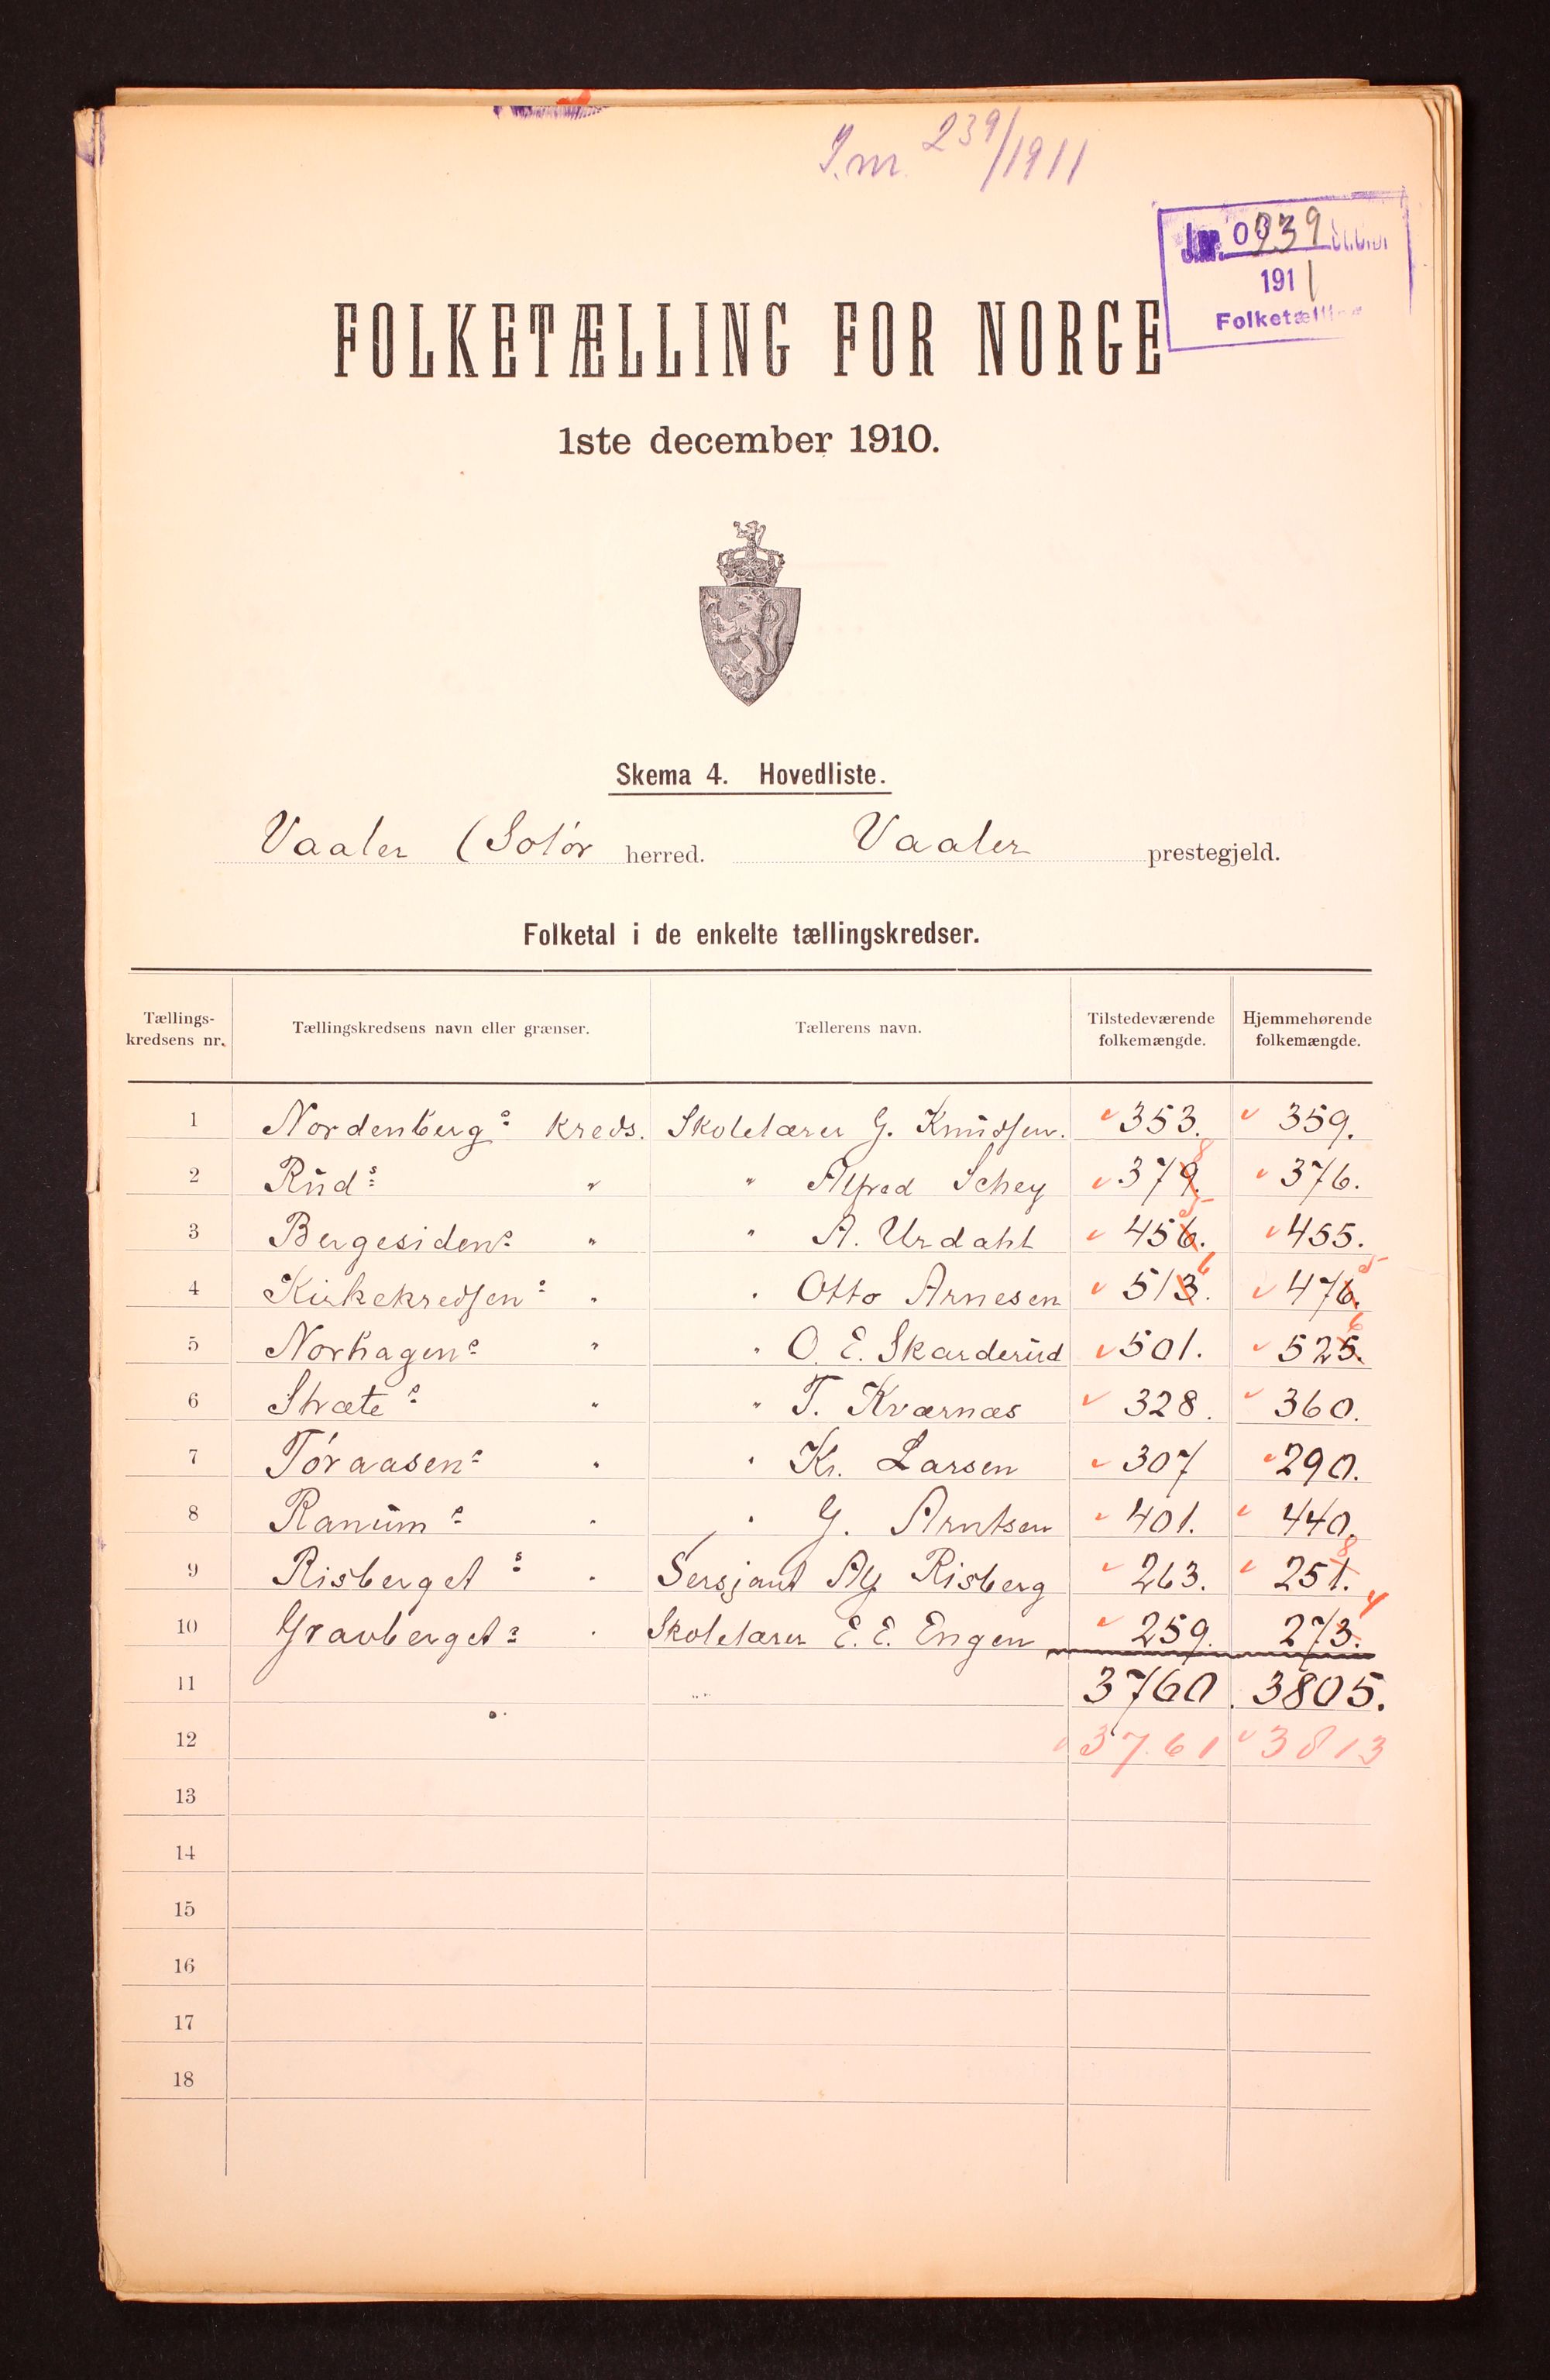 J.nr. 239/1911
Jnr. 0239
1911
Folketælling
FOLKETÆLLING FOR NORGE
1ste december 1910.
Skema 4. Hovedliste.
Vaaler (Solør herred. Vaaler prestegjeld.
Folketal i de enkelte tællingskredser.
Tællings-kredsens nr. Tællingskredsens navn eller grænser. Tællerens navn. Tilstedeværende folkemængde. Hjemmehørende folkemængde.
1 Nordenbergs kreds. Skolelærer G. Knudsen. 353. 359.
2 Ruds " " Alfred Schey 379. 8 376.
3 Bergesidens " " A. Urdahl 456. 5 455.
4 Kirkekredsens " " Otto Arnesen 513. 6 476. 5
5 Norhagens " " O. E. Skarderud 501. 525. 6
6 Stræte s " " T. Kværnæs 328. 360.
7 Tøraasens " " Kr. Larsen 307 290.
8 Ranums " " G. Arntsen 401. 440.
9 Risbergets " Sersjant Alf Risberg 263. 251. 8
10 Gravbergets " Skolelærer E. E. Engen 259. 273. 4
11 3760. 3805.
12 3761 3813
13
14
15
16
17
18